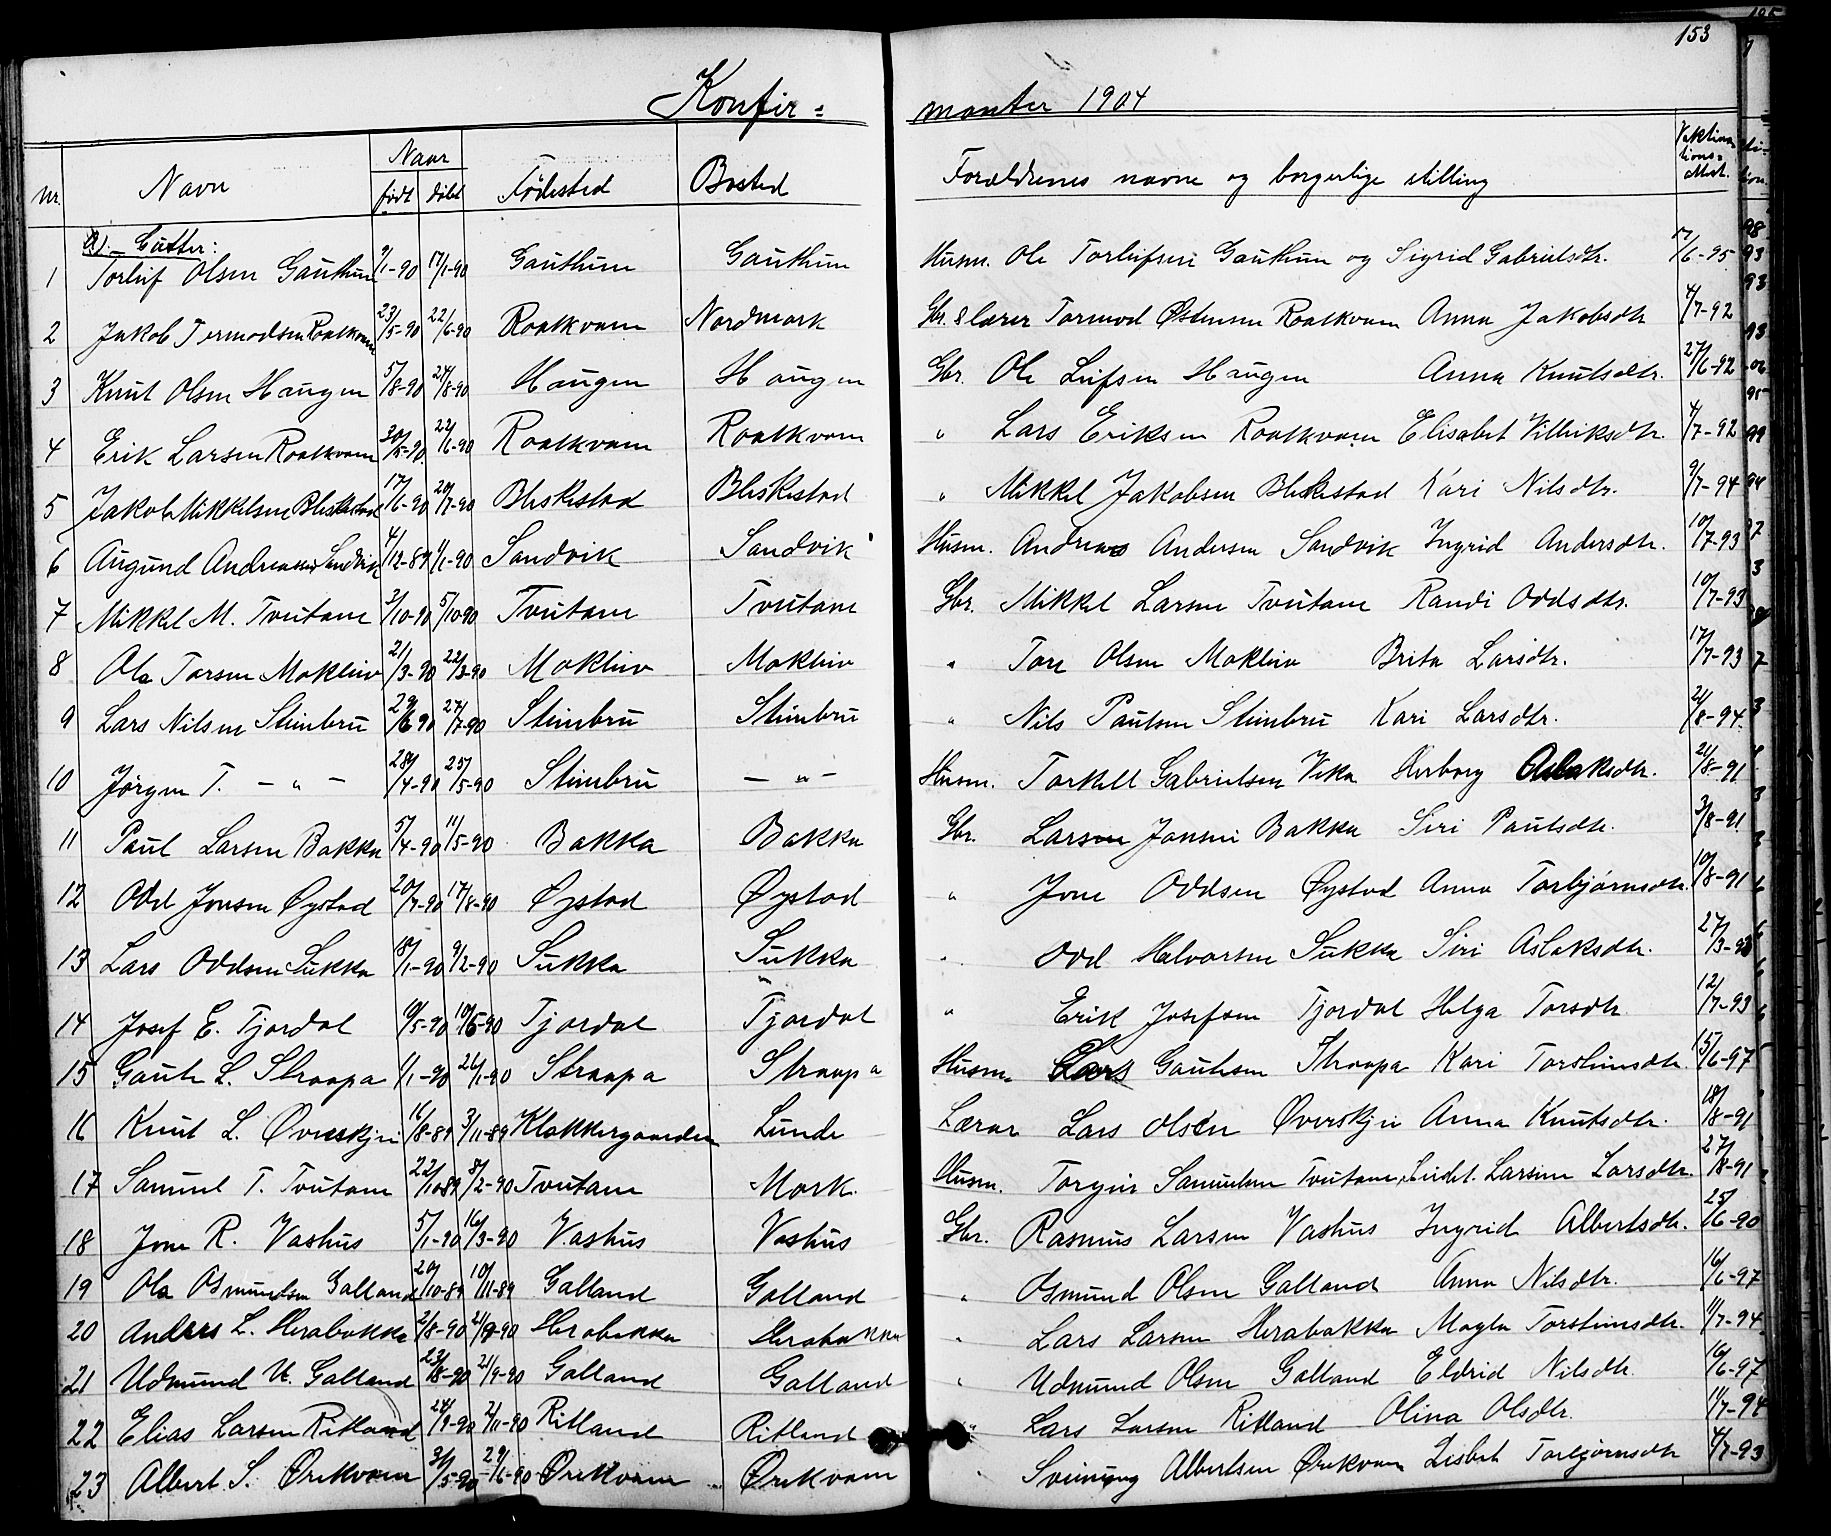 153
Konfir = manter 1904
Nr. Navn Naar født døbt Fødested Bosted Forældrenes navne og borgerlige stilling Vaktinationsattest.
a). Gutter:
1 Torleif Olsen Gauthun 9/1-90 17/1-90 Gauthun Gauthun Husm. Ole Torleifsen Gauthun og Sigrid Gabrielsdtr. 17/6-95
2 Jakob Tormodsen Roalkvam 23/5-90 22/6-90 Roalkvam Nordmark Gbr. & lærer Tormod Østensen Roalkvam Anna Jakobsdtr 4/7-92
3 Knut Olsen Haugen 5/8-90 24/8-90 Haugen Haugen Gbr. Ole Leifsen Haugen Anna Knutsdtr. 27/6-92
4 Erik Larsen Roalkvam 30/5-90 22/6-90 Roalkvam Roalkvam " Lars Eriksen Roalkvam Elisabet Villiksdtr. 4/7-92
5 Jakob Mikkelsen Bleskestad 17/6-90 20/7-90 Bleskestad Bleskestad " Mikkel Jakobsen Bleskestad Kari Nilsdtr. 9/7-94
6 Augund Andreassen Sandvik 4/12-89 1/1-90 Sandvik Sandvik Husm. Andreas Andersen Sandvik Ingrid Andersdtr. 10/7-93
7 Mikkel M. Tveitane 3/10-90 5/10-90 Tveitane Tveitane Gbr. Mikkel Larsen Tveitane Randi Oddsdtr. 10/7-93
8 Ola Torsen Mokleiv 2/3-90 22/3-90 Mokleiv Mokleiv " Tore Olsen Mokleiv Brita Larsdtr. 17/7-93
9 Lars Nilsen Steinbru 29/6 90 27/7-90 Steinbru Steinbru " Nils Paulsen Steinbru Kari Larsdtr. 21/8-94.
10 Jørgen T. - " - 28/4-90 25/5-90 Steinbru - " - Husm. Torkell Gabrielsen Vika Herborg Aslaksdtr. 21/8-91
11 Paul Larsen Bakka 5/4-90 11/5-90 Bakka Bakka Gbr. Larsen Jonsen Bakka Siri Paulsdtr. 3/8-91
12 Odd Jonsen Øystad 20/7-90 17/8-90 Øystad Øystad " Jone Oddsen Øystad Anna Torbjørnsdtr. 10/8-91
13 Lars Oddsen Sukka 18/1-90 9/2-90 Sukka Sukka " Odd Halvorsen Sukka Siri Aslaksdtr. 27/3-93
14 Josef E. Tjordal 9/5-90 10/5-90 Tjordal Tjordal " Erik Josefsen Tjordal Helga Torsdtr. 12/7-93
15 Gaute L. Straapa 1/1-90 26/1-90 Straapa Straapa Husm. Lars Gautesen Straapa Kari Torsteinsdtr. 15/6-97
16 Knut L. Øverskjei 16/8-89 3/11-89 Klokkergaarden Lunde Lærer Lars Olsen Øverskjei Anna Knutsdtr. 18/8-91
17 Samuel T. Tveitane 22/10-89 8/2-90 Tveitane Mork. Husm. Torgeir Samuelsen Tveitane, Larsine Larsdtr. 27/8-91
18 Jone R. Vashus 5/1-90 16/3-90 Vashus Vashus Gbr. Rasmus Larsen Vashus Ingrid Albertsdtr. 25/6-90
19 Ola Osmundsen Galland 20/10-89 10/11-89 Galland Galland " Osmund Olsen Galland Anna Nilsdtr. 16/6-97
20 Anders L. Herabakka 2/8-90 21/9-90 Herabakka Herabakka " Lars Larsen Herabakka Magla Torsteinsdtr. 11/7-94.
21 Udmund U. Galland 23/8-90 21/9-90 Galland Galland " Udmund Olsen Galland Eldrid Nilsdtr. 16/6-97
22 Elias Larsen Ritland 24/9-90 2/11-90 Ritland Ritland Lars Larsen Ritland Olina Olsdtr. 11/7-94
23 Albert S. Ørekvam 31/5-90 29/6-90 Ørekvam Ørekvam " Sveinung Albertsen Ørekvam Lisbet Torbjørnsdtr 4/7-93